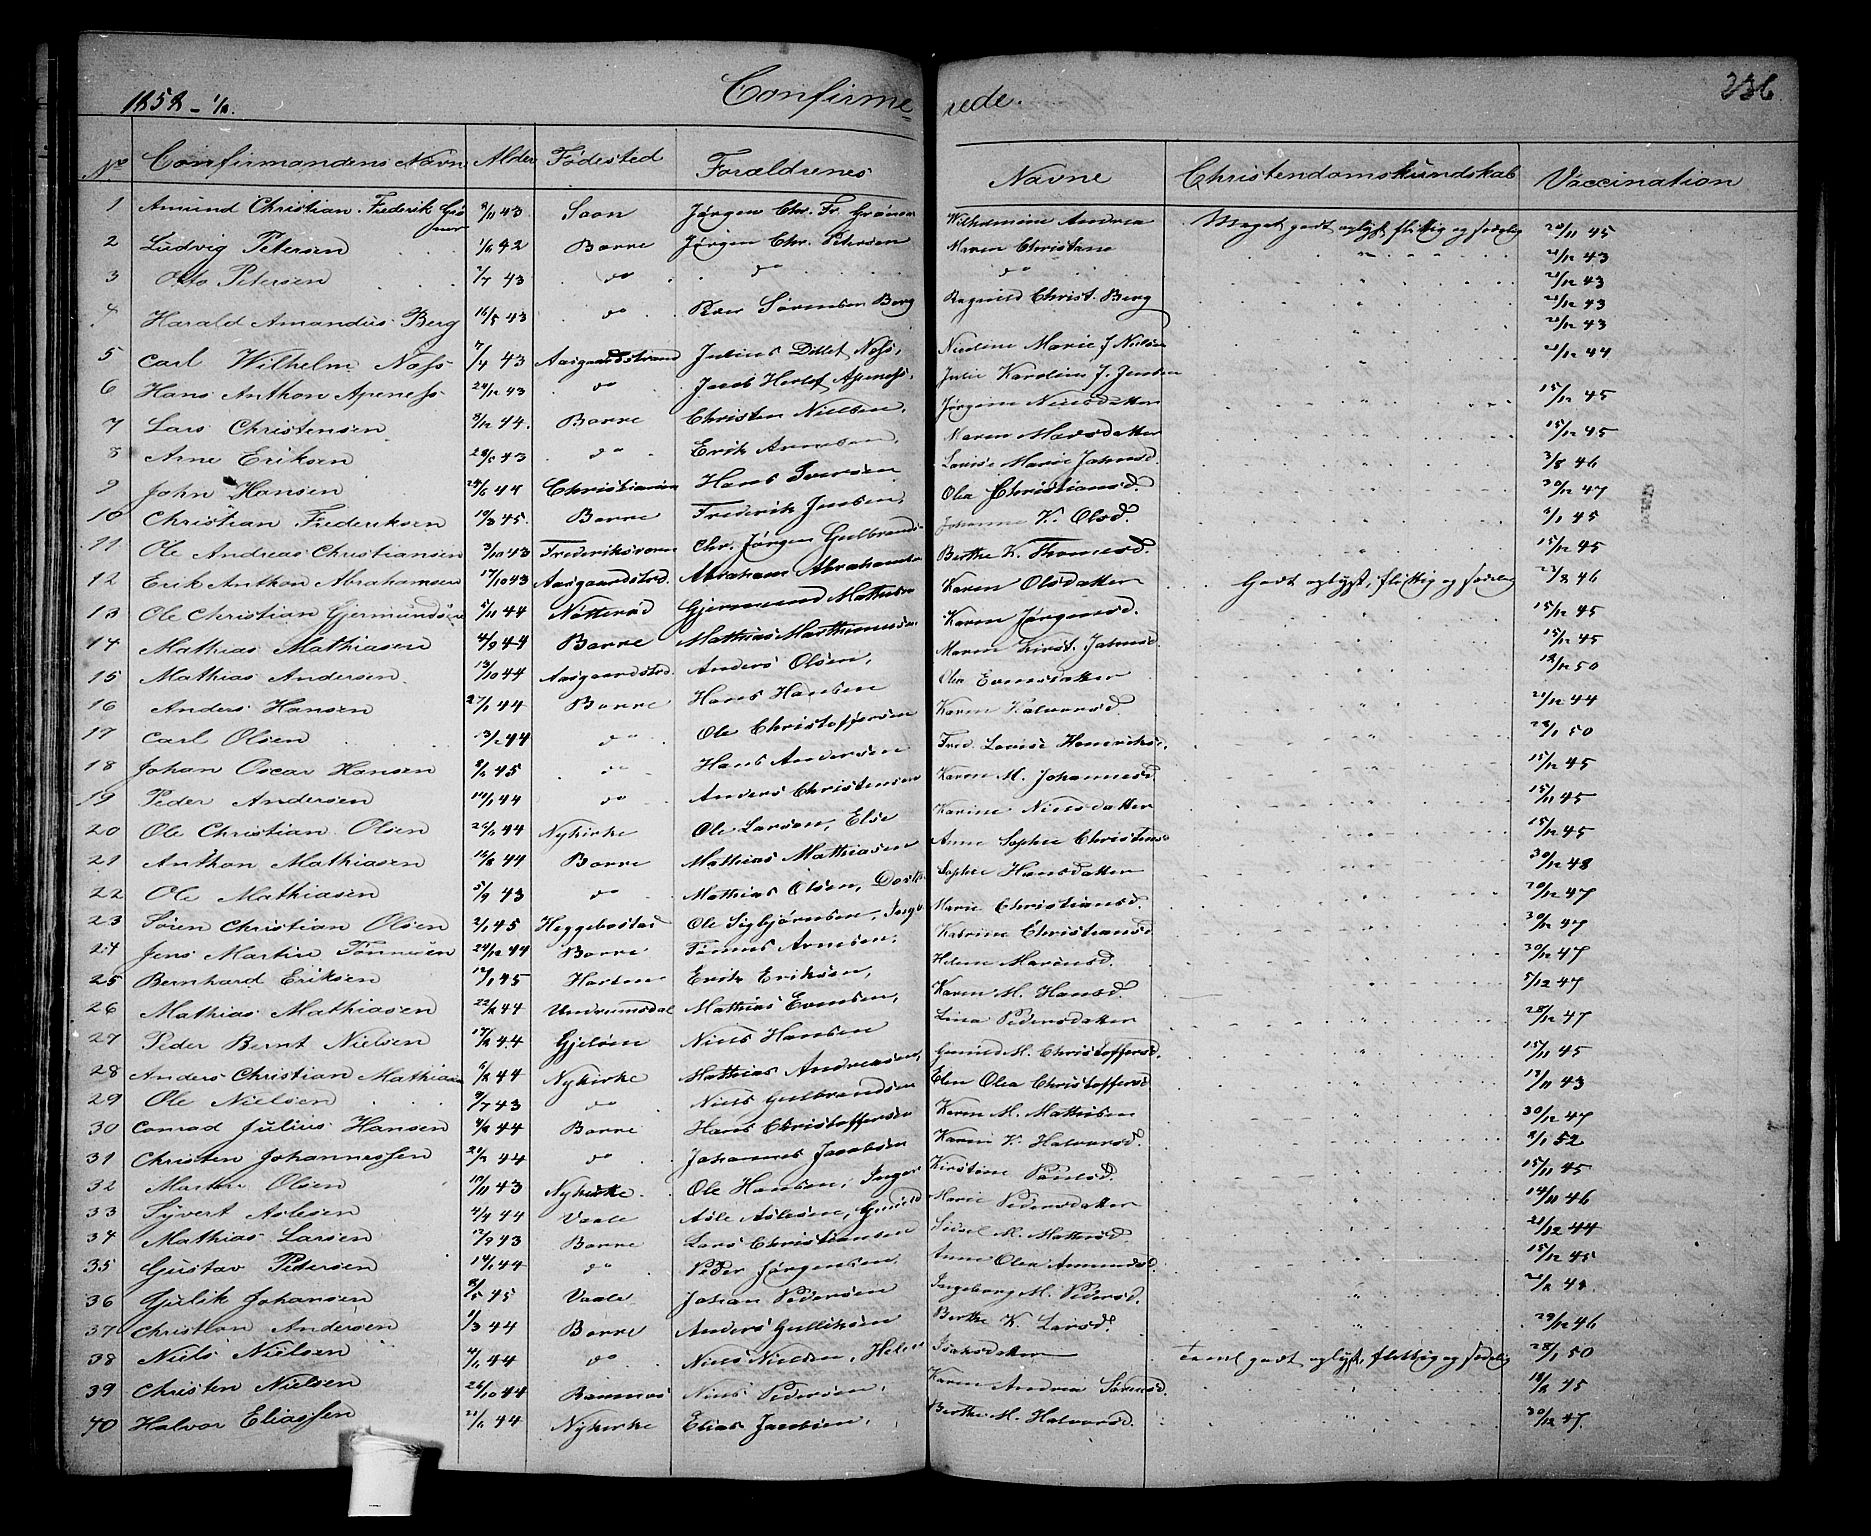 Confirmerede.
236
No Confirmandens Navn Alder Fødested Forældrenes Navne Christendomskundskab Vaccination
1 Amund Christian Frederik 43 Soon Jørgen Chr. Fr. Wilhelmine Andrea Meget godt oplyst, flittig og sædelig 45
2 Ludvig Petersen 42 Borre Jørgen Chr. Petersen Maren Christane 43
3 Otto Petersen 43 do do do 43
4 Harald Amandus Berg 43 do Peder Sørensen Berg Ragnild Christ. Berg 43
5 Carl Wilhelm Næss 43 Aasgaardstrand Julius Ditlef Næss, Nicoline Marie J Nielsen 44
6 Hans Anthon Apeness 43 do Jacob Herlof Apeness, Julie Karoline J. Jensen 15/12 45
7 Lars Christensen 44. Borre Christen Nielsen, Jørgine Nielsdatter 15/12 45
8 Arne Eriksen 43 do Erik Arnesen, Maren Larsdatter 3/8 46
9 John Hansen 44 Christiania Hans Iversen Lovise Marie Johnsd. 30/12 47
10 Christian Frederiksen 10/3 45. Borre Frederik Jensen, Olea Christiansd. 45
11 Ole Andreas Christiansen 3/10 43 Frederiksværn Chr. Jørgen Gulbrands Johanne K. Olsd. 15/12 45
12 Erik Anthon Abrahamsen 17/10 43 Aasgaardstrd. Abraham Abrahamsen Berthe K. Thomesd. Godt oplyst, flittig og sædelig 46
13 Ole Christian Gjermundsen 5/11 44 Nøtterød Gjermund Mathisen Karen Olsdatter 15/12 45
14 Mathias Mathiasen 4/9 44 Borre Mathias Marthinusen Karen Jørgensd. 15/12 45
15 Mathias Andersen 13/10 44 Aasgaardstrd. Anders Olsen, Maren Kirst. Johnsd. 50
16 Anders Hansen 44 Borre Hans Hansen Olea Evensdatter 44
17 Carl Olsen 44 do Ole Christoffersen Karen Halvorsd. 50
18 Johan Oscar Hansen 45 do Hans Andersen Fred. Lovise Henriksd. 15/12 45
19 Peder Andersen 44 do Anders Christensen Karen M. Johannesd. 15/11 45
20 Ole Christian Olsen 44 Nykirke Ole Larsen, Else Karine Nielsdatter 15/12 45
21 Anthon Mathiasen 44 Borre Mathias Mathiasen Anne Sophie Christensd 30/12 48
22 Ole Mathiasen 5/9 43 do Mathias Olsen, Sophie Hansdatter 20/12 47
23 Søren Christian Olsen 45 Heggebostad Ole Sigbjørnsen, Inge Marie Christiansd. 30/12 47
24 Jens Martin Tønnesen 24/12 44 Borre Tønnes Arnesen, Katrine Christiansd 30/12 47
25 Bernhard Eriksen 45 Horten Erik Eriksen, Helene Marensd. 5/12 47
26 Mathias Mathiasen 44 Undrumsdal Mathias Evensen, Karen M. Hansd. 28/12 47
27 Peder Bernt Nielsen 44 Gjeløen Niels Hansen Lina Pedersdatter 15/11 45
28 Anders Christian Mathiasen 44 Nykirke Mathias Andreasen, Gunild M. Christoffersd. 13/11 43
29 Ole Nielsen 9/7 43 do Niels Gulbrandsen Elen Olea Christoffersd 30/12 47
30 Conrad Julius Hansen 44 Borre Hans Christoffersen Karen M. Mathisen 52
31 Christen Johannessen 44 do Johannes Jacobsen Karen K. Halvorsd. 15/11 45
32 Martin Olsen 43 Nykirke. Ole Hansen, Inger Kirstine Poulsd. 14/11 46
33 Syvert Aslesen 44 Vaale Asle Aslesen, Gunild Marie Pedersdatter 44
34 Mathias Larsen 43 Borre Lars Christiansen Sidsel M. Mattisd. 15/12 45
35 Gustav Petersen 44 do Peder Jørgensen, Anne Olea Amundsd.
36 Gulik Johansen 45 Vaale Johan Pedersen Ingeborg M. Pedersd. 29/12 46
37 Christian Andersen 1/3 44 Borre Anders Gulliksen Berthe K. Larsd.
38 Niels Nielsen 44 do Niels Nielsen, Helene Isaksdatter Temel godt oplyst, flittig og sædelig 50
39 Christen Nielsen 26/10 44 Niels Pedersen, Karen Andrea Sørensd. 45
40 Halvor Eliassen 44 Nykirke Elias Jacobsen, Berthe M. Halvorsd. 30/12 47.